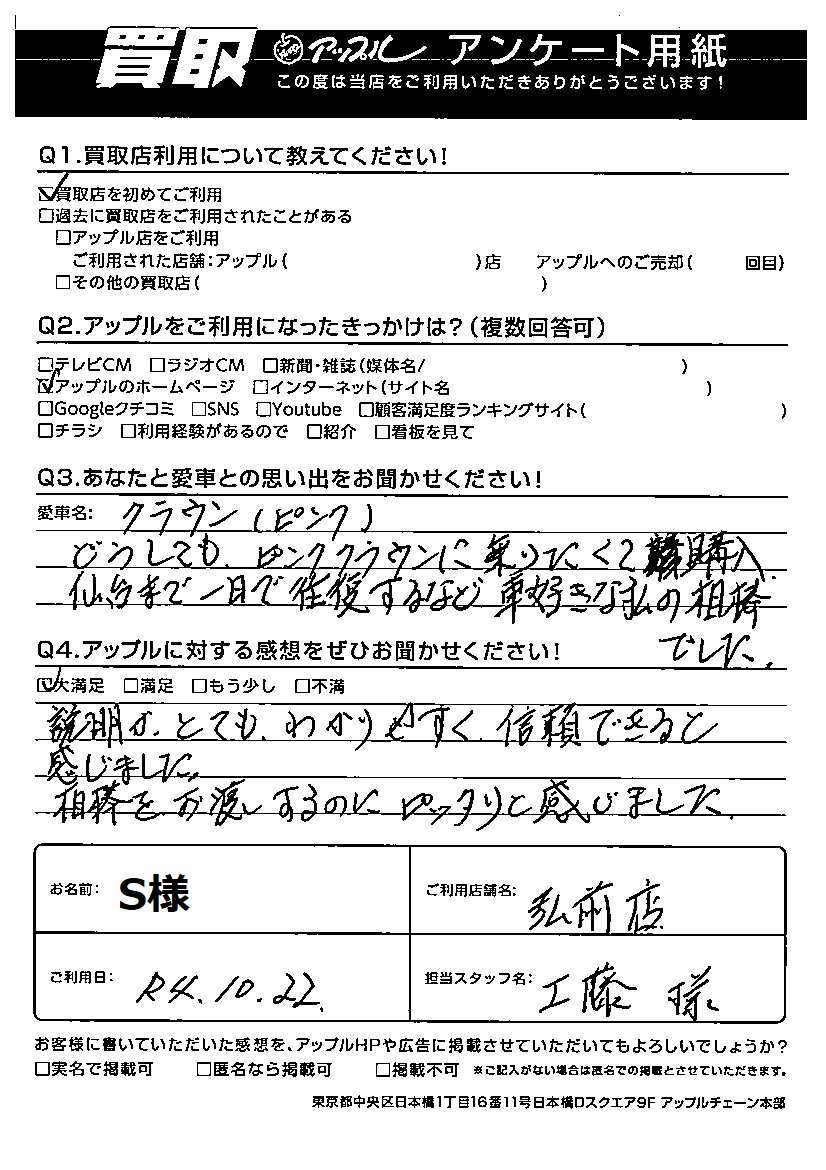 買取 アップル アンケート用紙
この度は当店をご利用いただきありがとうございます!
Q1.買取店利用について教えてください!
☑買取店を初めてご利用
□過去に買取店をご利用されたことがある
□アップル店をご利用
ご利用された店舗:アップル( )店 アップルへのご売却( 回目)
□その他の買取店( )
Q2.アップルをご利用になったきっかけは?(複数回答可)
□テレビCM □ラジオCM □新聞・雑誌(媒体名/ )
☑アップルのホームページ □インターネット(サイト名 )
□Googleクチコミ □SNS □Youtube □顧客満足度ランキングサイト( )
□チラシ □利用経験があるので □紹介 □看板を見て
Q3.あなたと愛車との思い出をお聞かせください!
愛車名: クラウン(ピンク)
どうしても、ピンククラウンに乗りたくて購入
仙台まで一日で往復するなど車好きな私の相棒
でした。
Q4.アップルに対する感想をぜひお聞かせください!
☑大満足 □満足 □もう少し □不満
説明が、とても、わかりやすく、信頼できると
感じました。
相棒をお渡しするのにピッタリと感じました。
お名前: S様 ご利用店舗名: 弘前店
ご利用日: R4.10.22. 担当スタッフ名: 工藤 様
お客様に書いていただいた感想を、アップルHPや広告に掲載させていただいてもよろしいでしょうか?
□実名で掲載可 □匿名なら掲載可 □掲載不可 ※ご記入がない場合は匿名での掲載とさせていただきます。
東京都中央区日本橋1丁目16番11号日本橋Dスクエア9F アップルチェーン本部